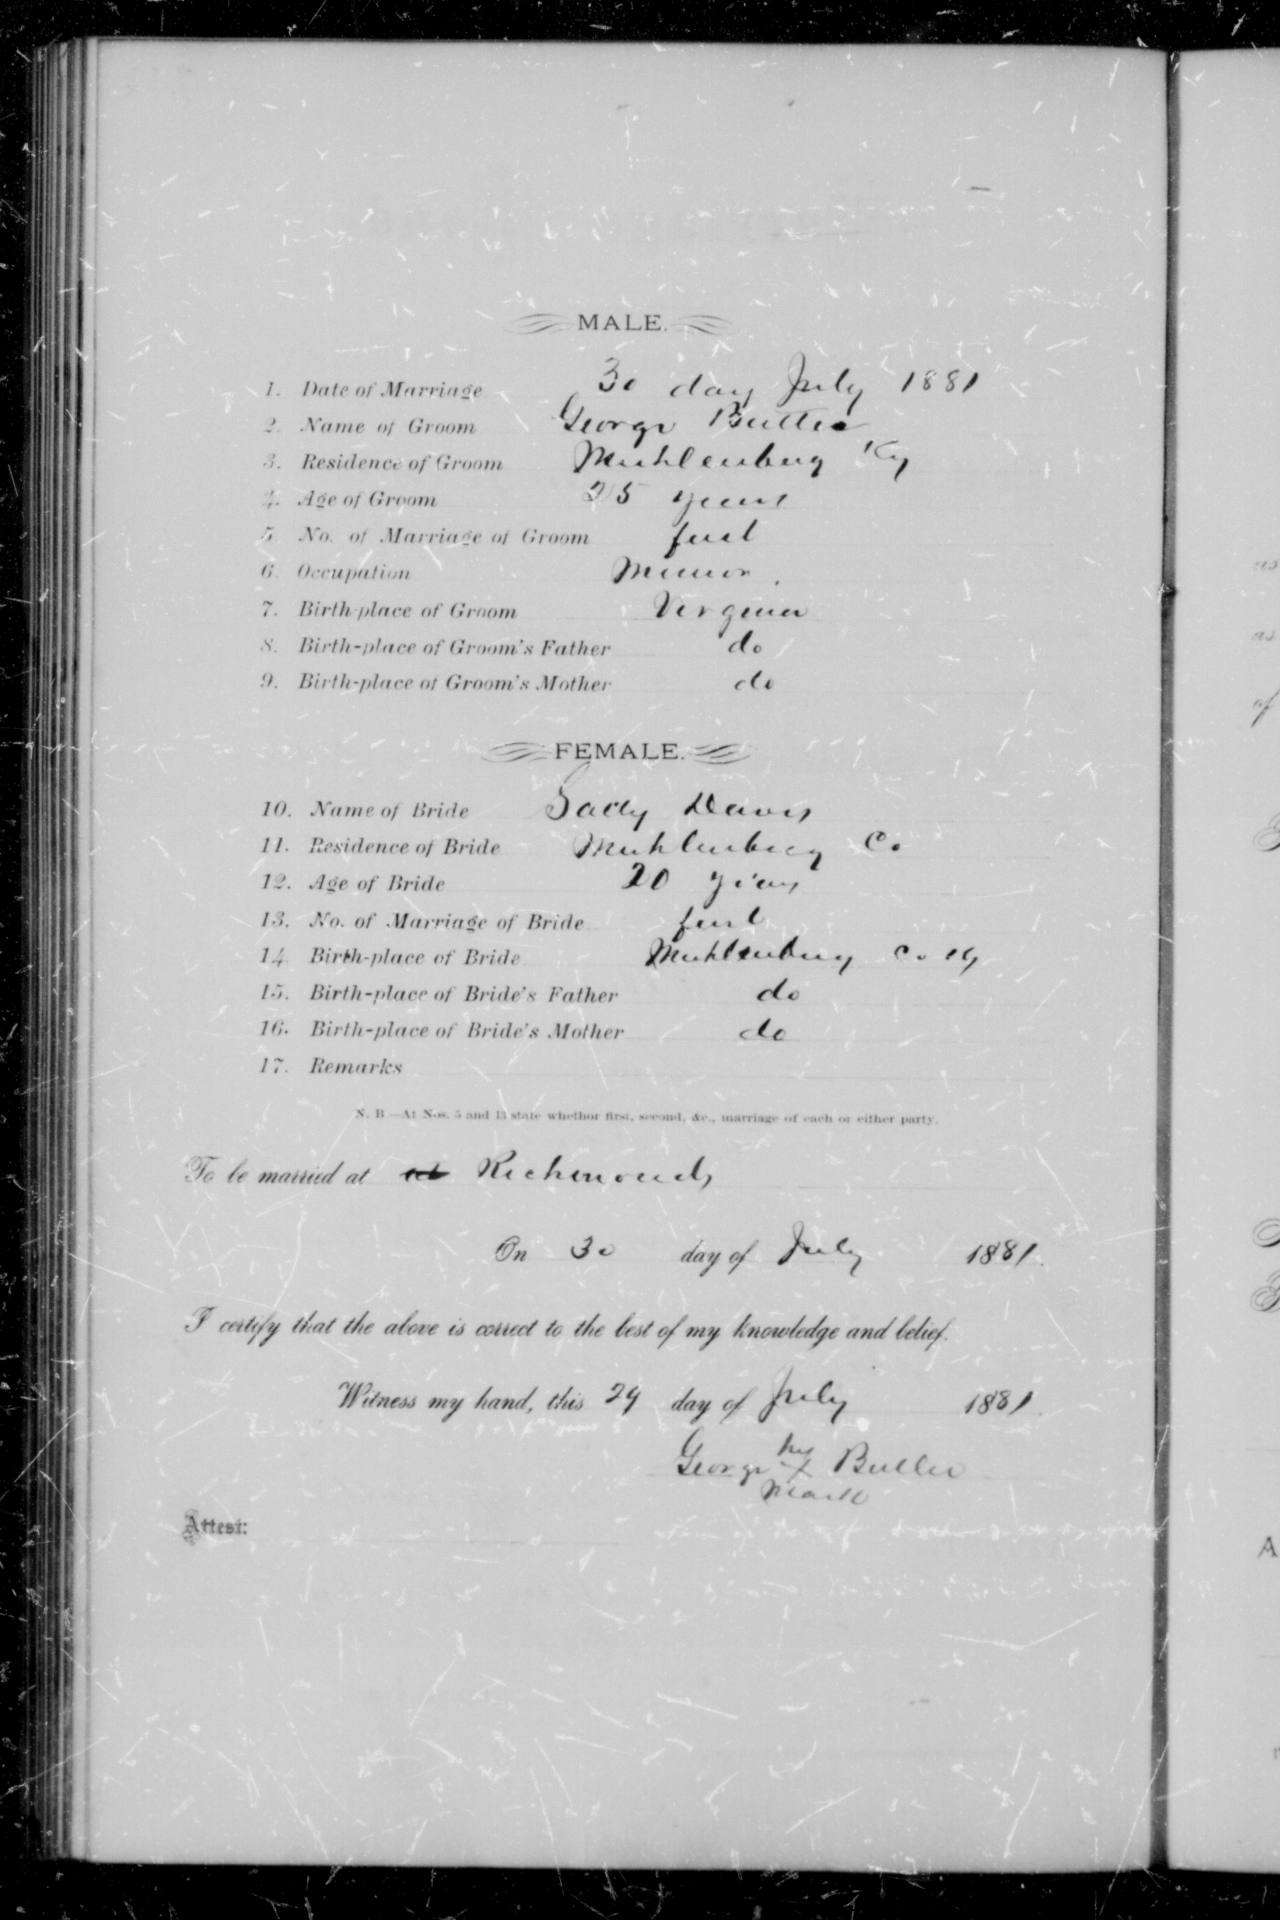 MALE.
1. Date of Marriage 30 day July 1881
2. Name of Groom George Butler
3. Residence of Groom Muhlenburg Ky
4. Age of Groom 25 years
5. No. of Marriage of Groom first
6. Occupation Minor.
7. Birth-place of Groom Virginia
8. Birth-place of Groom's Father do
9. Birth-place of Groom's Mother do
FEMALE.
10. Name of Bride Sady Davis
11. Residence of Bride Muhlenburg Co
12. Age of Bride 20 years
13. No. of Marriage of Bride first
14. Birth-place of Bride Muhlenburg Co Ky
15. Birth-place of Bride's Father do
16. Birth-place of Bride's Mother do
17. Remarks
N. B —At Nos. 5 and 13 state whether first, second, &c., marriage of each or either party.
To be married at at Richmonds
On 30 day of July 1881.
I certify that the above is correct to the best of my knowledge and belief.
Witness my hand, this 29 day of July 1881.
his
George X Butler
mark
Attest: